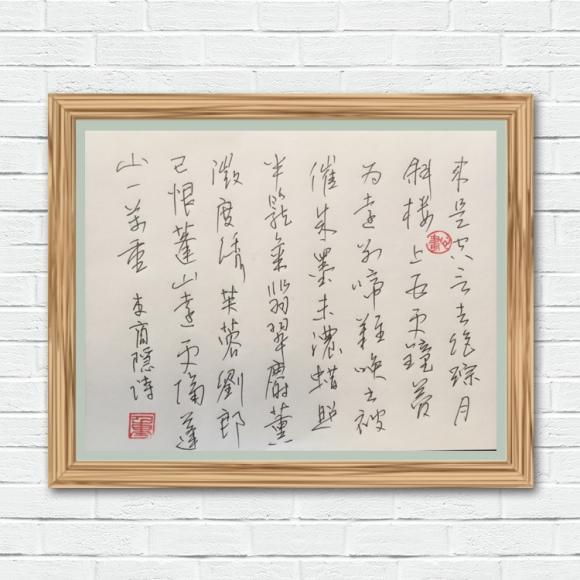 来是空言去绝踪月
斜楼上五更鐘夢
为遠别啼難唤书被
催成墨未濃蜡照
半籠金翡翠麝薰
微度绣芙蓉劉郎
已恨蓬山遠更隔蓬
山一萬重 李商隐诗